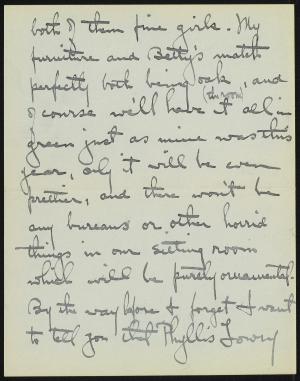 both of them fine girls. My
furniture and Betty's match
perfectly both being oak, and
(this room)
of course we'll have it all in
green just as mine was this
year, only it will be even
prettier, and there won't be
any bureaus or other horrid
things in our sitting room
which will be purely ornamental.
By the way before I forget I want
to tell you that Phyllis Lowry